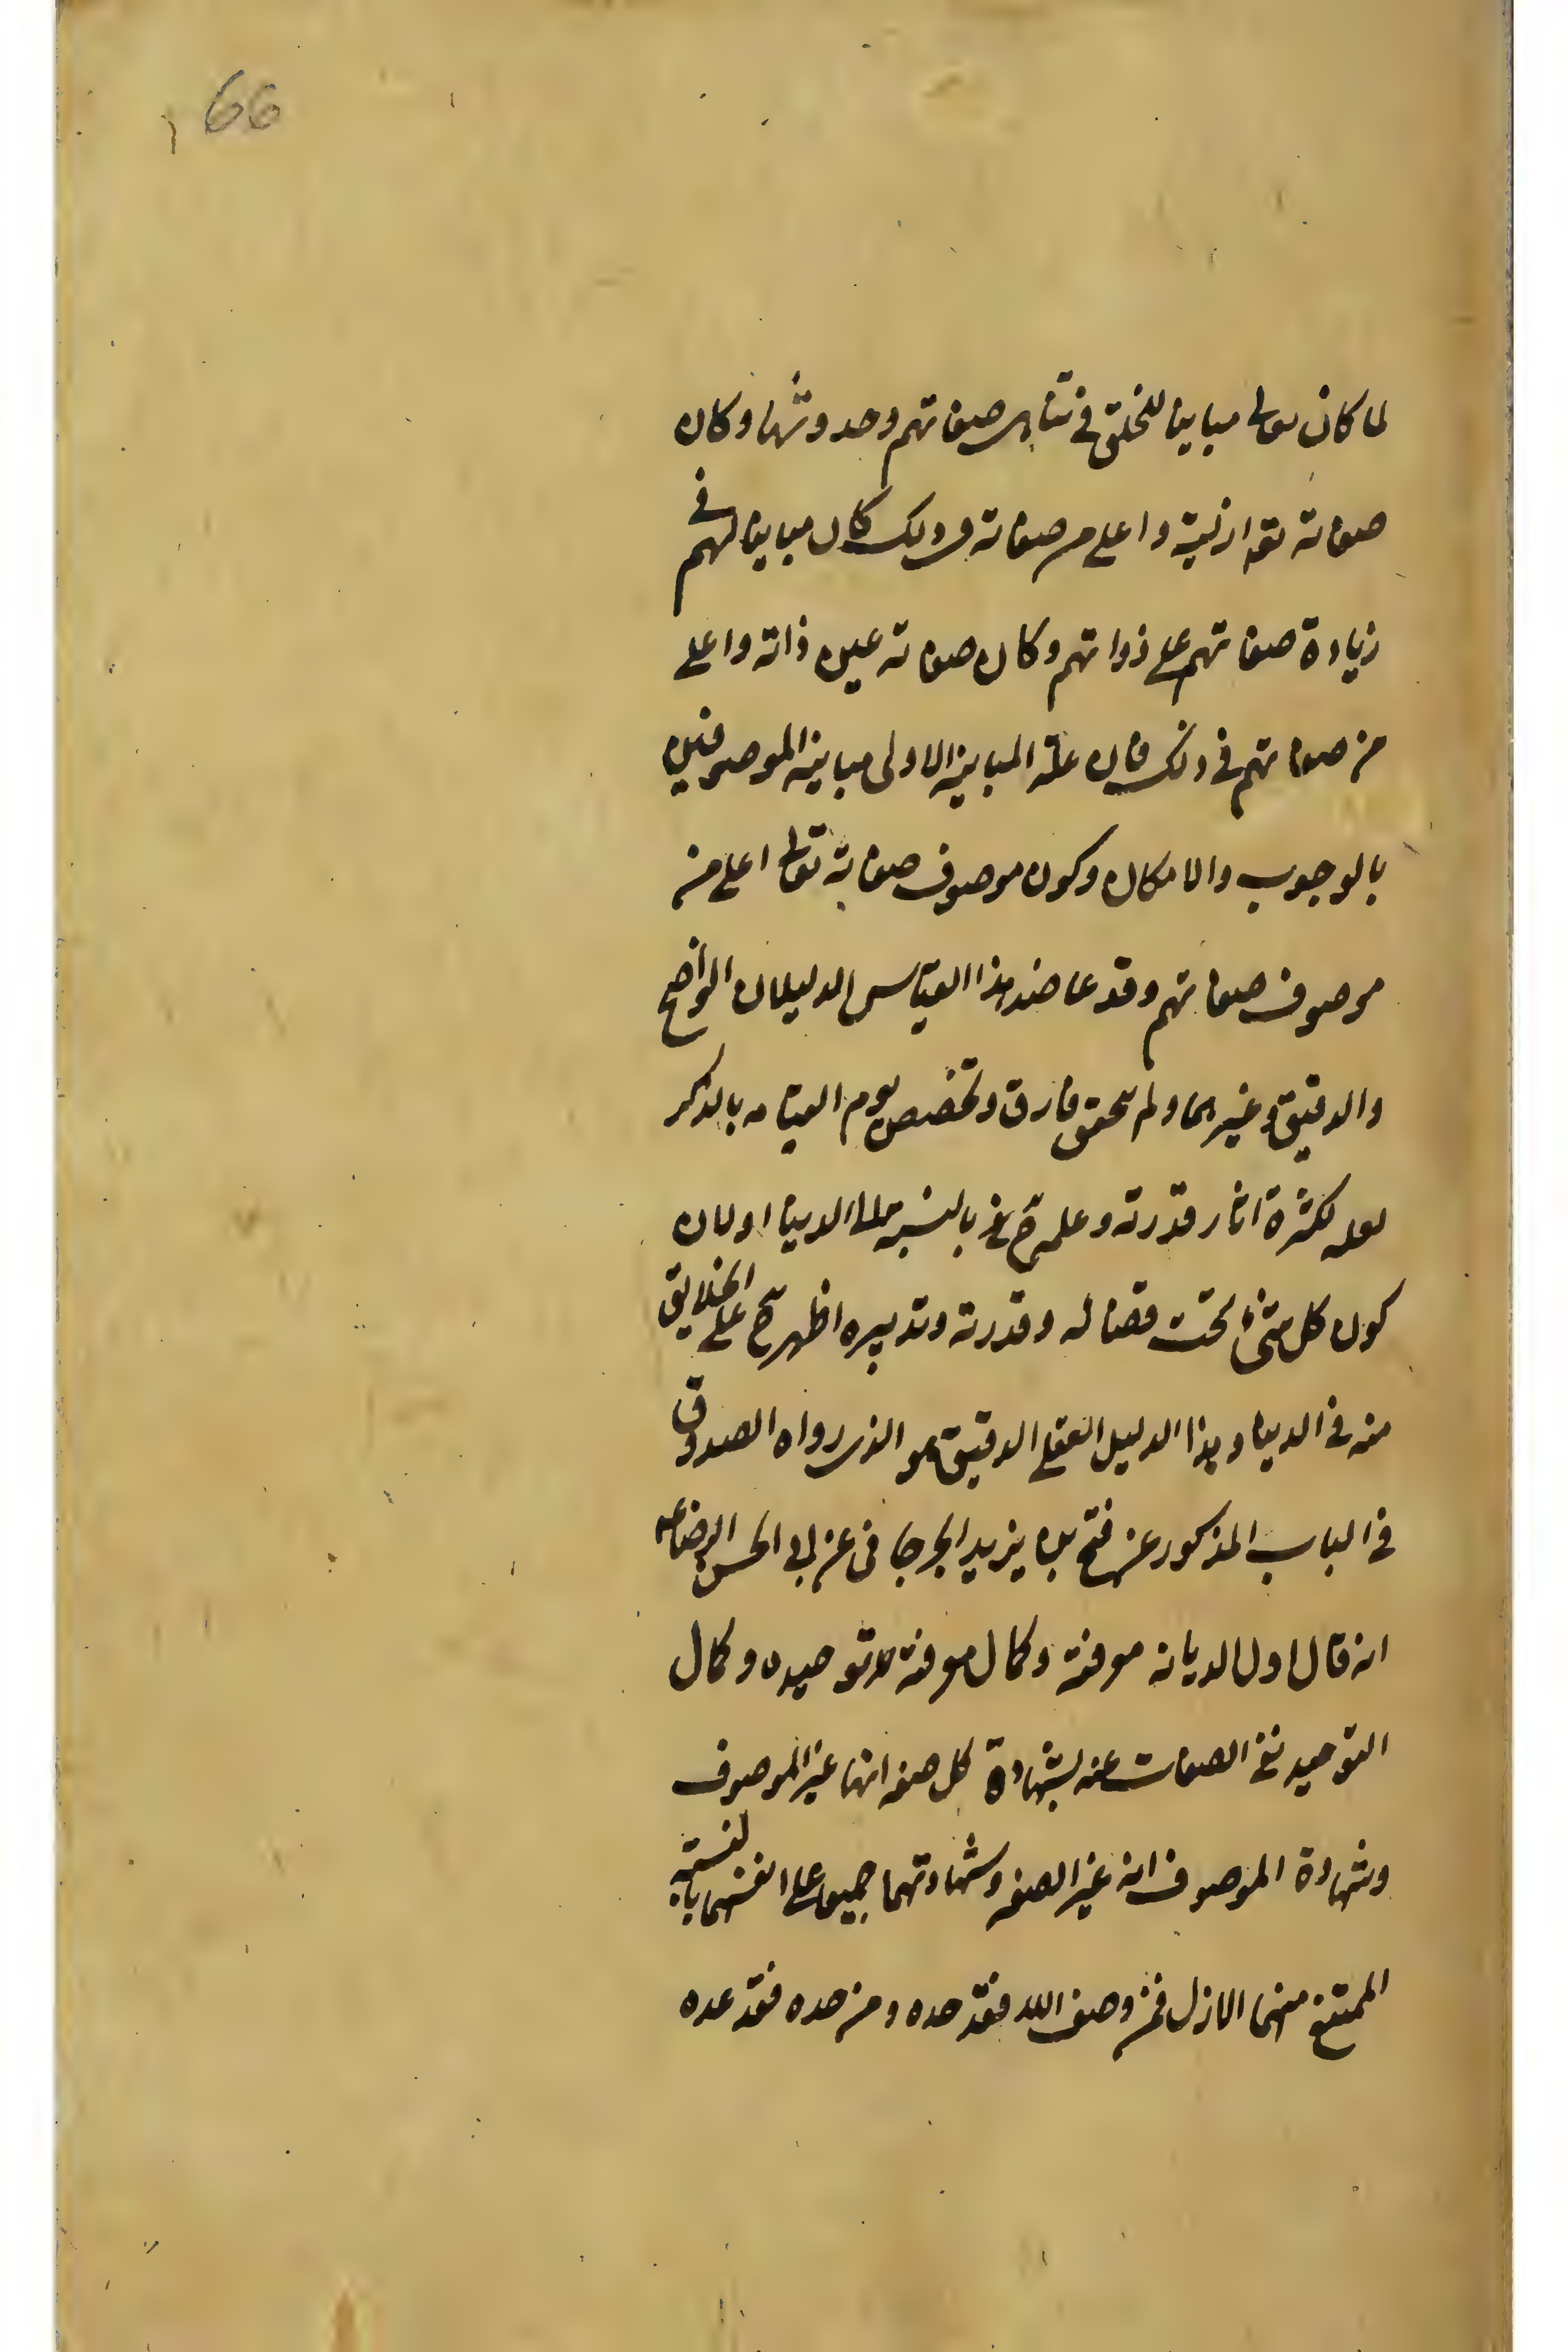 66
لما كان تعالى مباينا للخلق في تناهي صفاتهم وحدوثها وكان
صفاته تعه ازلية واعلى من صفاته في ذلك كان مباينا لهم في
زيادة صفاتهم على ذواتهم وكان صفاته عين ذاته واعلى
من صفاتهم في ذلك فان علة المباينة الاولى مباينة الموصوفين
بالوجوب والامكان وكون موصوف صفاته تعالى اعلى من
موصوف صفاتهم وقد عاضد هذا القياس الدليلان الواضح
والدقيق وغيرهما ولم يتحقق فارق وتخصيص يوم القيامه بالذكر
لعله لكثرة اثار قدرته وعلمه ح بالنسبة الى الدنيا او لان
كون كل شئ تحت قضائه وقدرته وتدبيره اظهر ح على الخلايق
منه في الدنيا وهذا الدليل العقلي الدقيق هو الذي رواه الصدوق
في الباب المذكور عن فتح بن يزيد الجرجاني عن ابي الحسن الرضا ع
انه قال اول الديانه معرفته وكمال معرفته توحيده وكمال
التوحيد نفي الصفات عنه بشهادة كل صفه انها غير الموصوف
وشهادة الموصوف انه غير الصفه وشهادتهما جميعا على انفسهما بالبينة
الممتنع منها الازل فمن وصف الله فقد حده ومن حده فقد عده